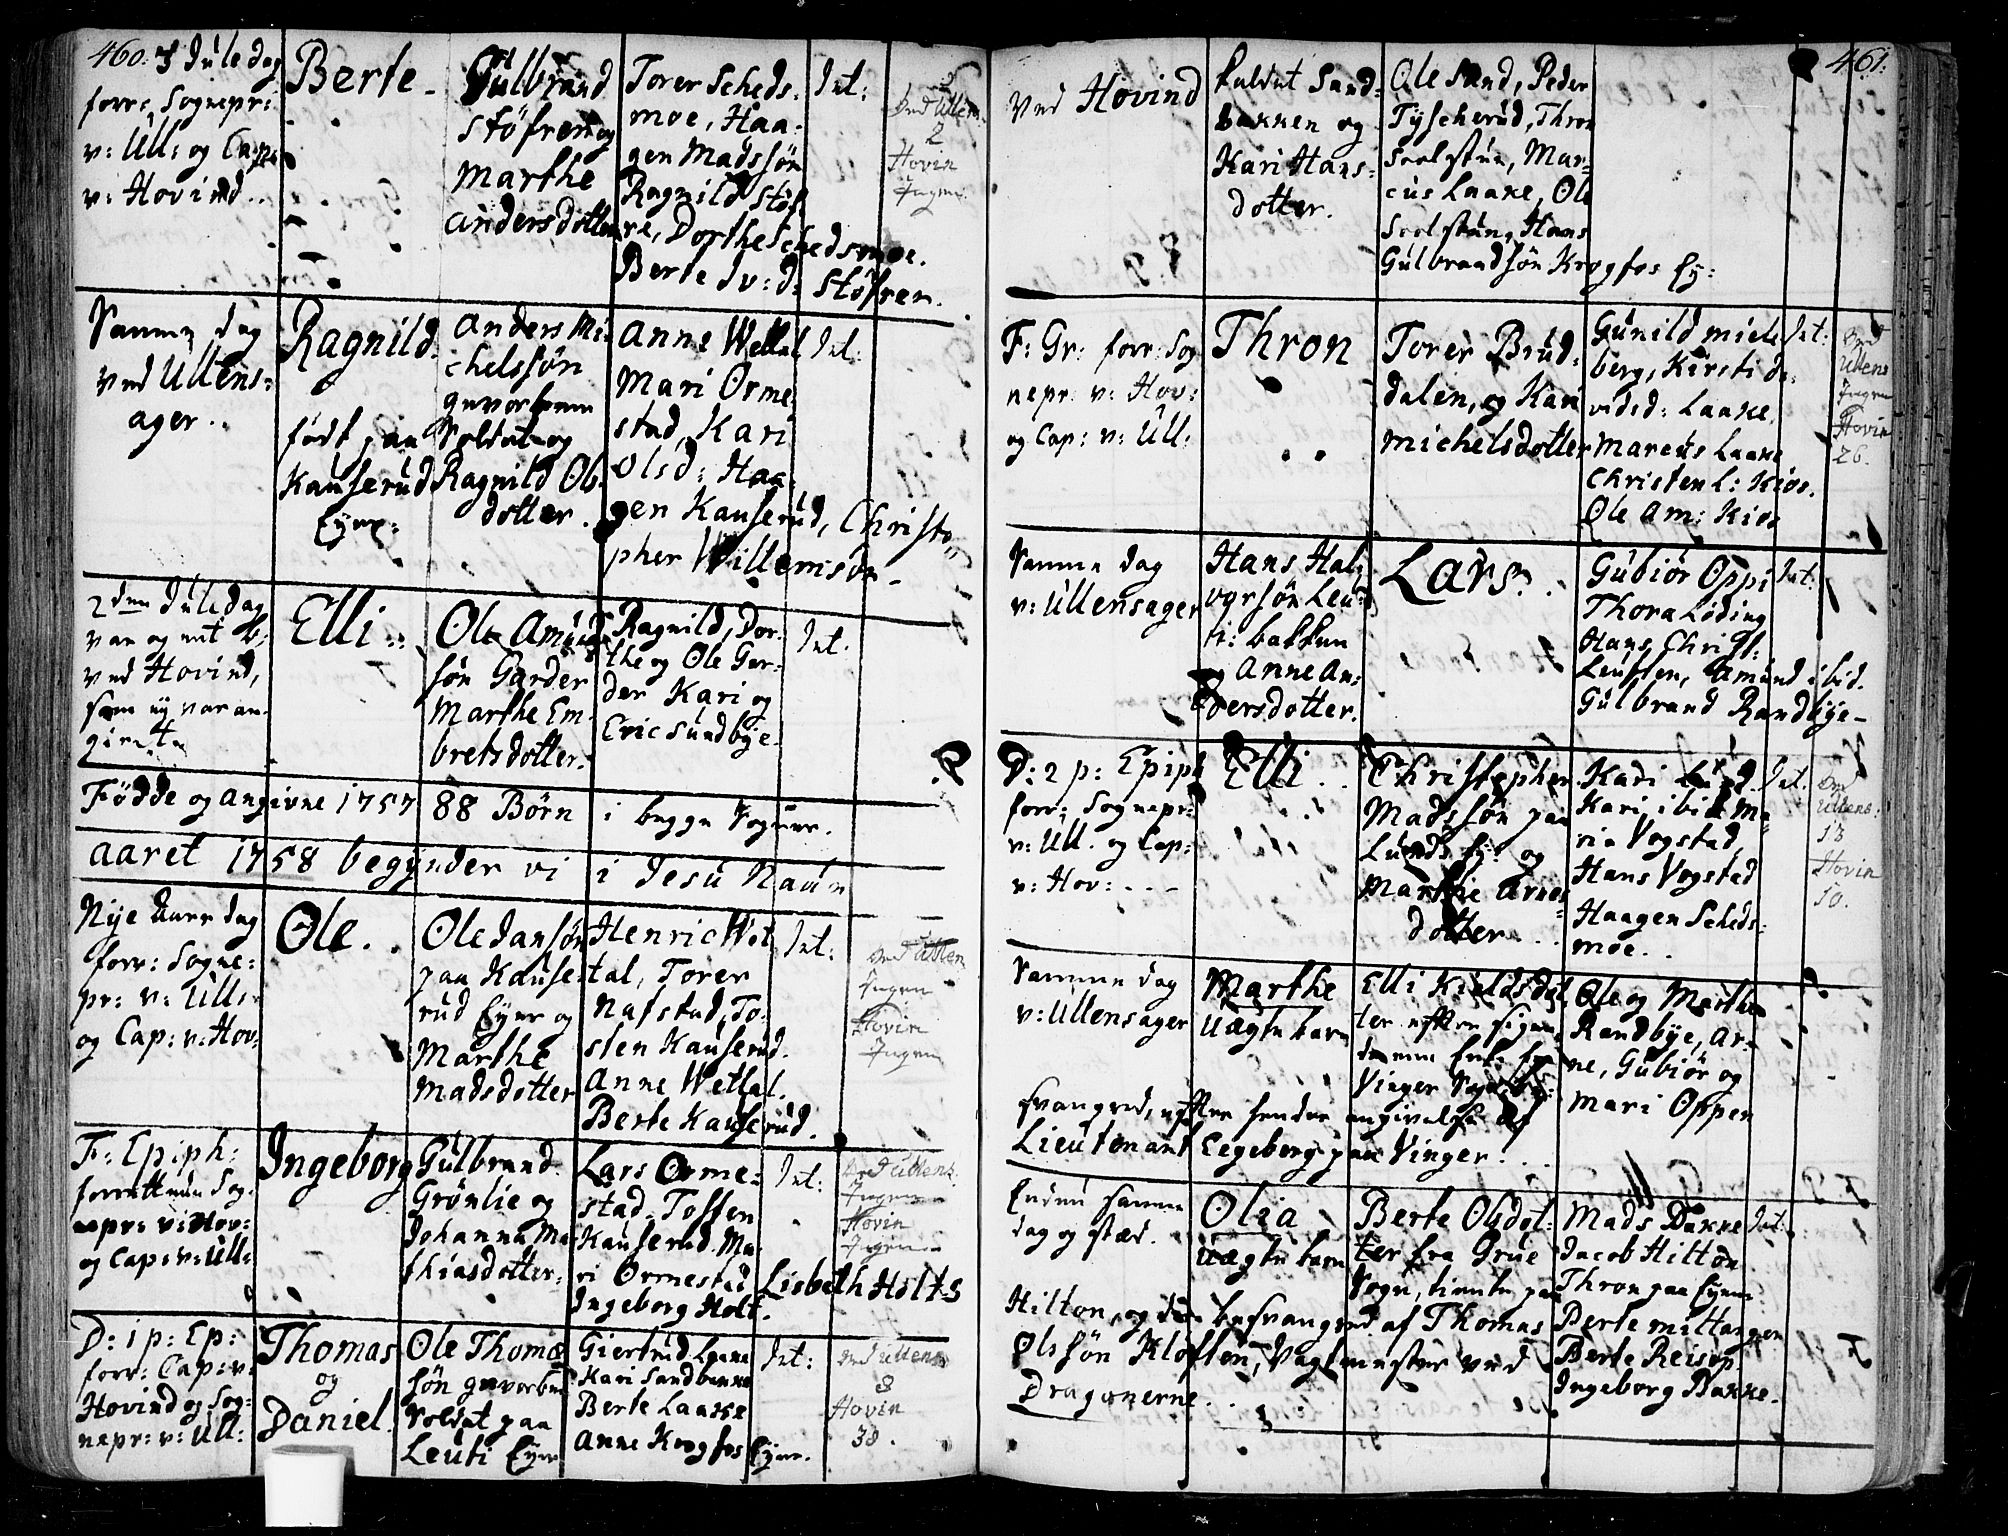 460.
3 Juledag
forr: Sognepr:
v: Ull: og Cap:
v: Hovind..
Berte
Gulbrand
Støfren og
Marthe
Andersdotter
Torer Scheds-
moe, Haa-
gen Madssøn
Ragnild Støf
re, Dorthe Schedsmoe.
Berte Iv: d: Støfren.
Int:
ved Ullen
2
Hovin
Ingen
Samme dag
ved Ullens-
ager..
Ragnild
født paa
Kauserud
Eyer:
Anders Mi-
chelssøn
gevorben
Soldat og
Ragnild Ols
dotter.
Anne Wettal
Mari Orme
stad, Kari
Olsd: Haa-
gen Kauserud, Christo
pher Willemsøn
Int:
2den Juledag
var og mit b:
ved Hovind,
som ey var an-
given
Elli
Ole Amund
søn Garder
Marthe Em-
bretsdotter.
Ragnild, Dor-
the og Ole Gar-
der Kari og
Eric Sundbye.
Int.
Fødde og angivne 1757 88 Børn i begge Sogner.
aaret 1758 begynder vi i Jesu Naun
Nye Aars dag
forr: Sogne-
pr: v: Ull:
og Cap: v: Hov:
Ole.
Ole Jansøn
paa Kause-
rud Eyer og
Marthe
Madsdotter
Henric Wet
tal, Torer
Nafstad, To-
sten Kauserud.
Anne Wettal.
Berte Kauserud.
Int:
ved Ullen
Ingen
Hovin
Ingen
F: Epiph:
forrettede Sog-
nepr: v: Hov:
og Cap: v: Ull:
Ingeborg
Gulbrand
Grønlie og
Johanna Ma-
thiasdotter.
Lars Orme-
stad. Tosten
Kauserud. Ma-
ri Ormestad
Ingeborg Holt.
Lisbeth Holts
Int:
ved Ullens.
Ingen
Hovin
Ingen
D: 1 p: Ep:
forr: Cap: v:
Hovind og Sog-
nepr: v: Ull:
Thomas
og
Daniel.
Ole Thomæ
søn gevorben
Soldat paa
Leuti Eyer
Giertrud Laake
Kari Sandbakke
Berte Laake
Anne Krogfos Eyer.
Int:
ved Ullens
8
Hovin
30.
461.
Ved Hovind
kaldet Sand-
bakken og
Kari Hans-
dotter.
Ole Sand, Peder
Tyscherud, Thron
Soolstun, Mar-
cus Laake, Ole
Soolstun, Hans
Gulbrandsøn Krogfos Ey:
F: Gr: forr: Sog
nepr: v: Hov:
og Cap: v: Ull:
Thron
Torer Brud-
dalen, og Kari
Michelsdotter
Gunild Miele
berg, Kirsti
Laake,
Marcus Laake
Christen L: Kios.
Ole Am: Kios
Int:
ved
Ullens
Ingen
Hovin
26.
Samme dag
v: Ullensager
Hans Hal-
vorsøn Leu-
ti: bakken
og Anne An-
dersdotter.
Lars.
Gubiør Oppi
Thora Løding
Hans Christ:
Leusten, Amund ibid.
Gulbrand Randbye
Int:
D: 2 p: Epiph
forr: Sognepr:
v: Ull. og Cap:
v: Hov:
Elli
Christopher
Madssøn paa
Lunds Ey: og
Marthe Arnes
dotter
Kari Lund.
Kari ibid Ma-
ria Vogstad,
Hans Vogstad
Haagen Scheds-
moe.
Int.
ved
Ullens.
13
Hovin
50.
Samme dag
v: Ullensager
Marthe
Uægte barn
Elli Kieldsdot
ter efter sigen
Vinger Sogn
svangred, efter hendes angivelse af
Lieutenant Eegeberg paa Vinger.
Ole og Marthe
Randbye, Ar-
ne, Gubiør og
Mari Oppen
Endnu samme
dag og stæd.
Olia
Uægte barn
Berte Olsdot-
ter fra Grue
Sogn, tiente paa
Hilton, og der besvangred af Thomas
Olssøn Kløften, Vagtmester ved
Dragonerne
Mads Bakke
Jacob Hilton
Thron paa Eyer
Berte
Berte Reisop
Ingeborg Bakke.
Int: